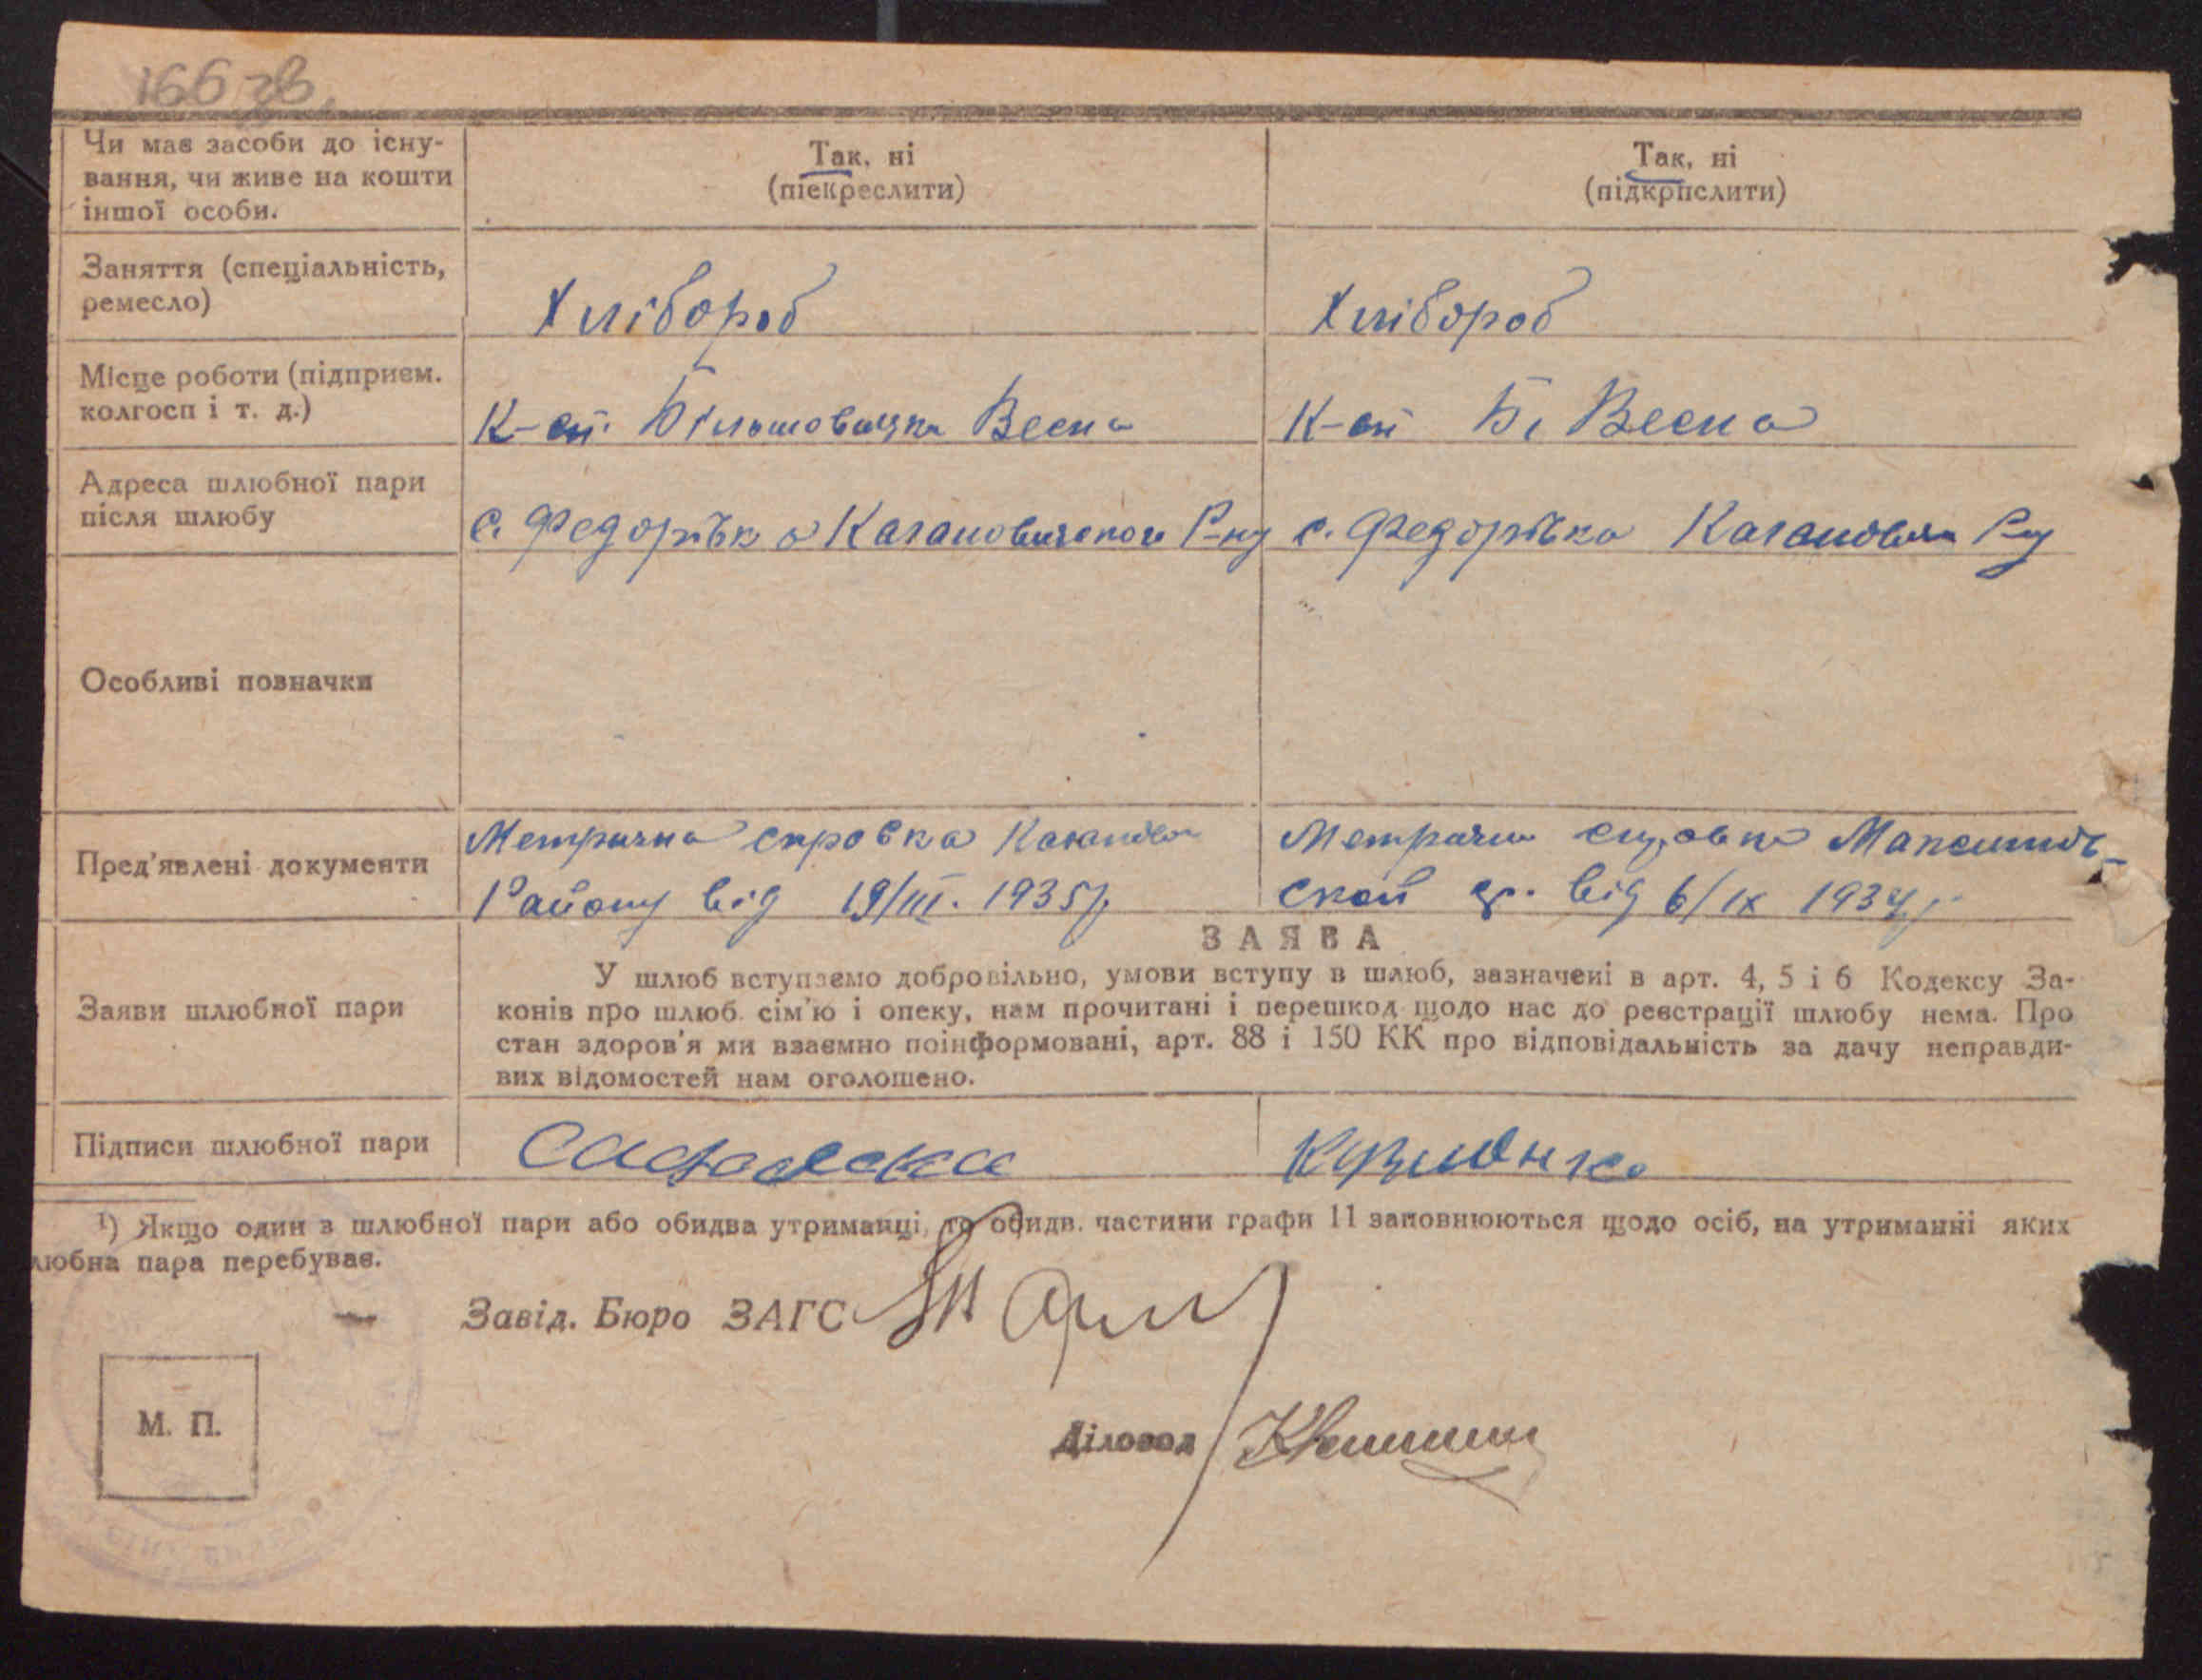 166 зв.
Чи має засоби до існу-
вання, чи живе на кошти
іншої особи.
Так, ні
(піекреслити)
Так, ні
(підкрпслити)
Заняття (спеціальність,
ремесло)
Хлібороб
Хлібороб
Місце роботи (підприєм.
колгосп і т. д.)
К-сп. Більшовицка Весна
К-сп Бі Весна
Адреса шлюбної пари
після шлюбу
с. Федорівка Кагановичского Р-ну
с. Федорівка Р-ну
Особливі позначки
Пред'явлені документи
Метрична справка
Району від 19/III. 1935 р.
Метрична справка Максимов-
ской від 6/IX 1934 р.
Заяви шлюбної пари
ЗАЯВА
У шлюб вступаємо добровільно, умови вступу в шлюб, зазначені в арт. 4, 5 і 6 Кодексу За-
конів про шлюб. сім'ю і опеку, нам прочитані і перешкод щодо нас до реєстрації шлюбу нема. Про
стан здоров'я ми взаємно поінформовані, арт. 88 і 150 КК про відповідальність за дачу неправди-
вих відомостей нам оголошено.
Підписи шлюбної пари
Кузменко
¹) Якщо один з шлюбної пари або обидва утриманці, то обидв. частини графи 11 заповнюються щодо осіб, на утриманні яких
любна пара перебуває.
Завід. Бюро ЗАГС
М. П.
Діловод